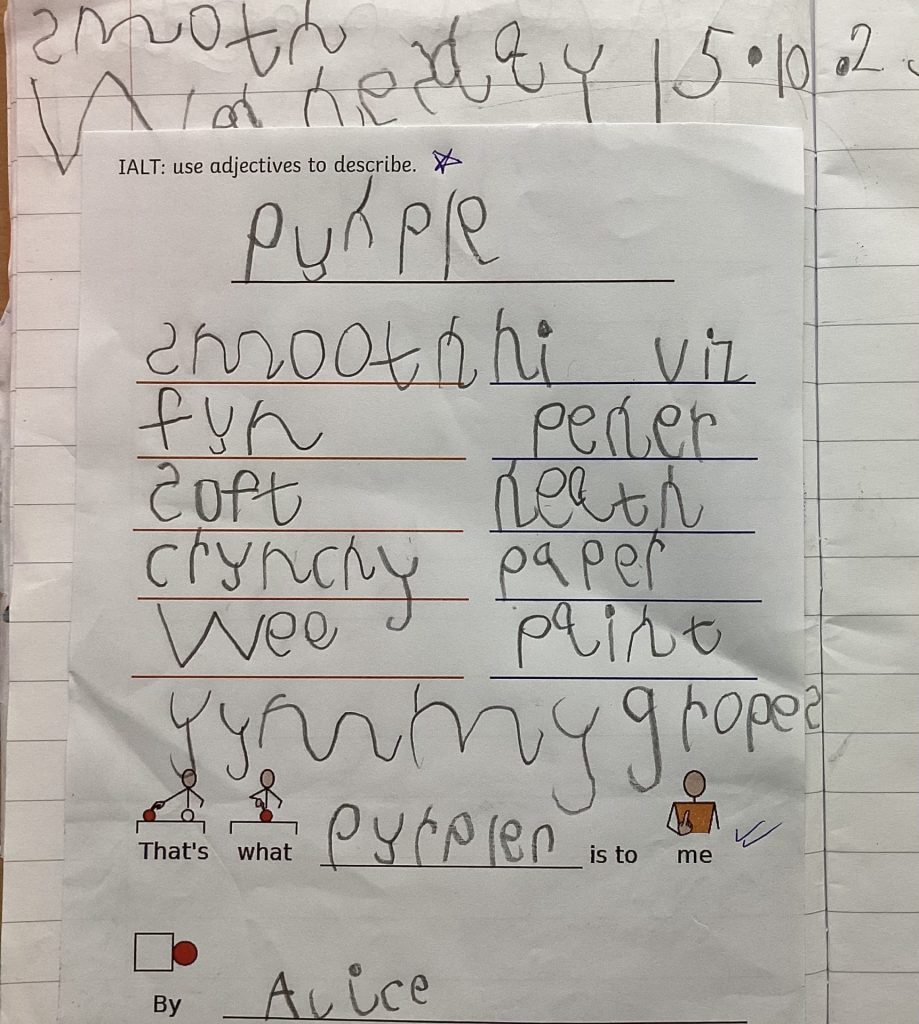 smooth
Wednesday 15.10.2
IALT: use adjectives to describe.
purple
smooth hi viz
fun pener
soft heath
crunchy paper
wee paint
yummy gropes
That's what purplen is to me
By Alice